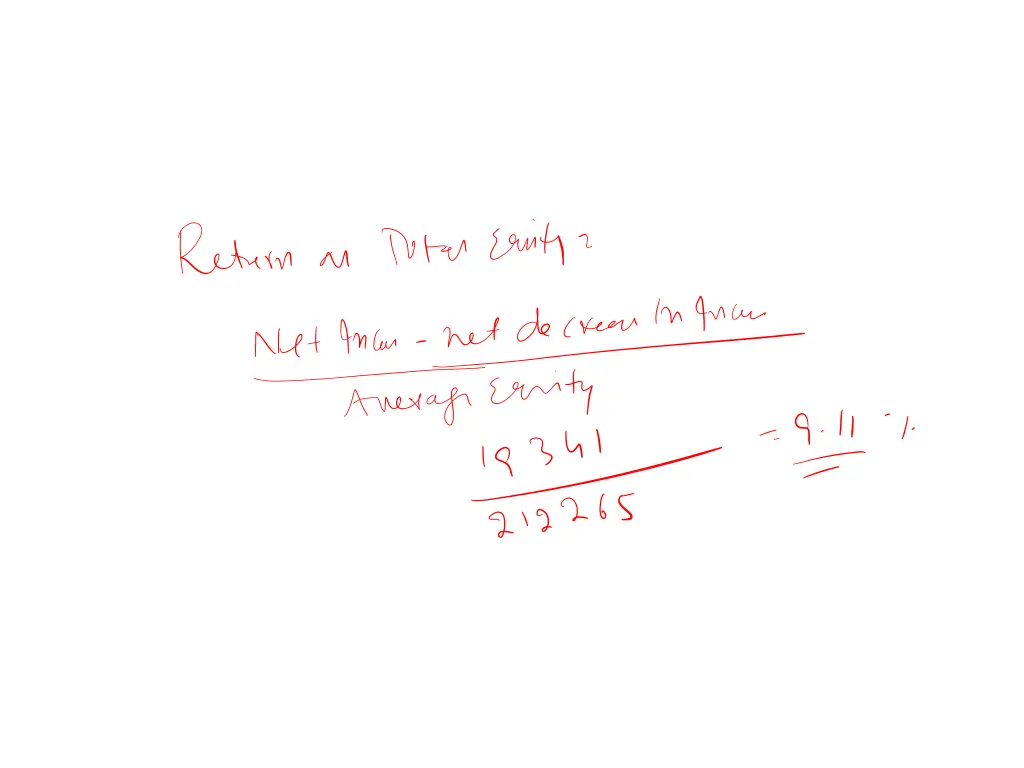 Return on Total Equity =
Net Income - net decrease in Income
Average Equity
19341
= 9.11 %
212265